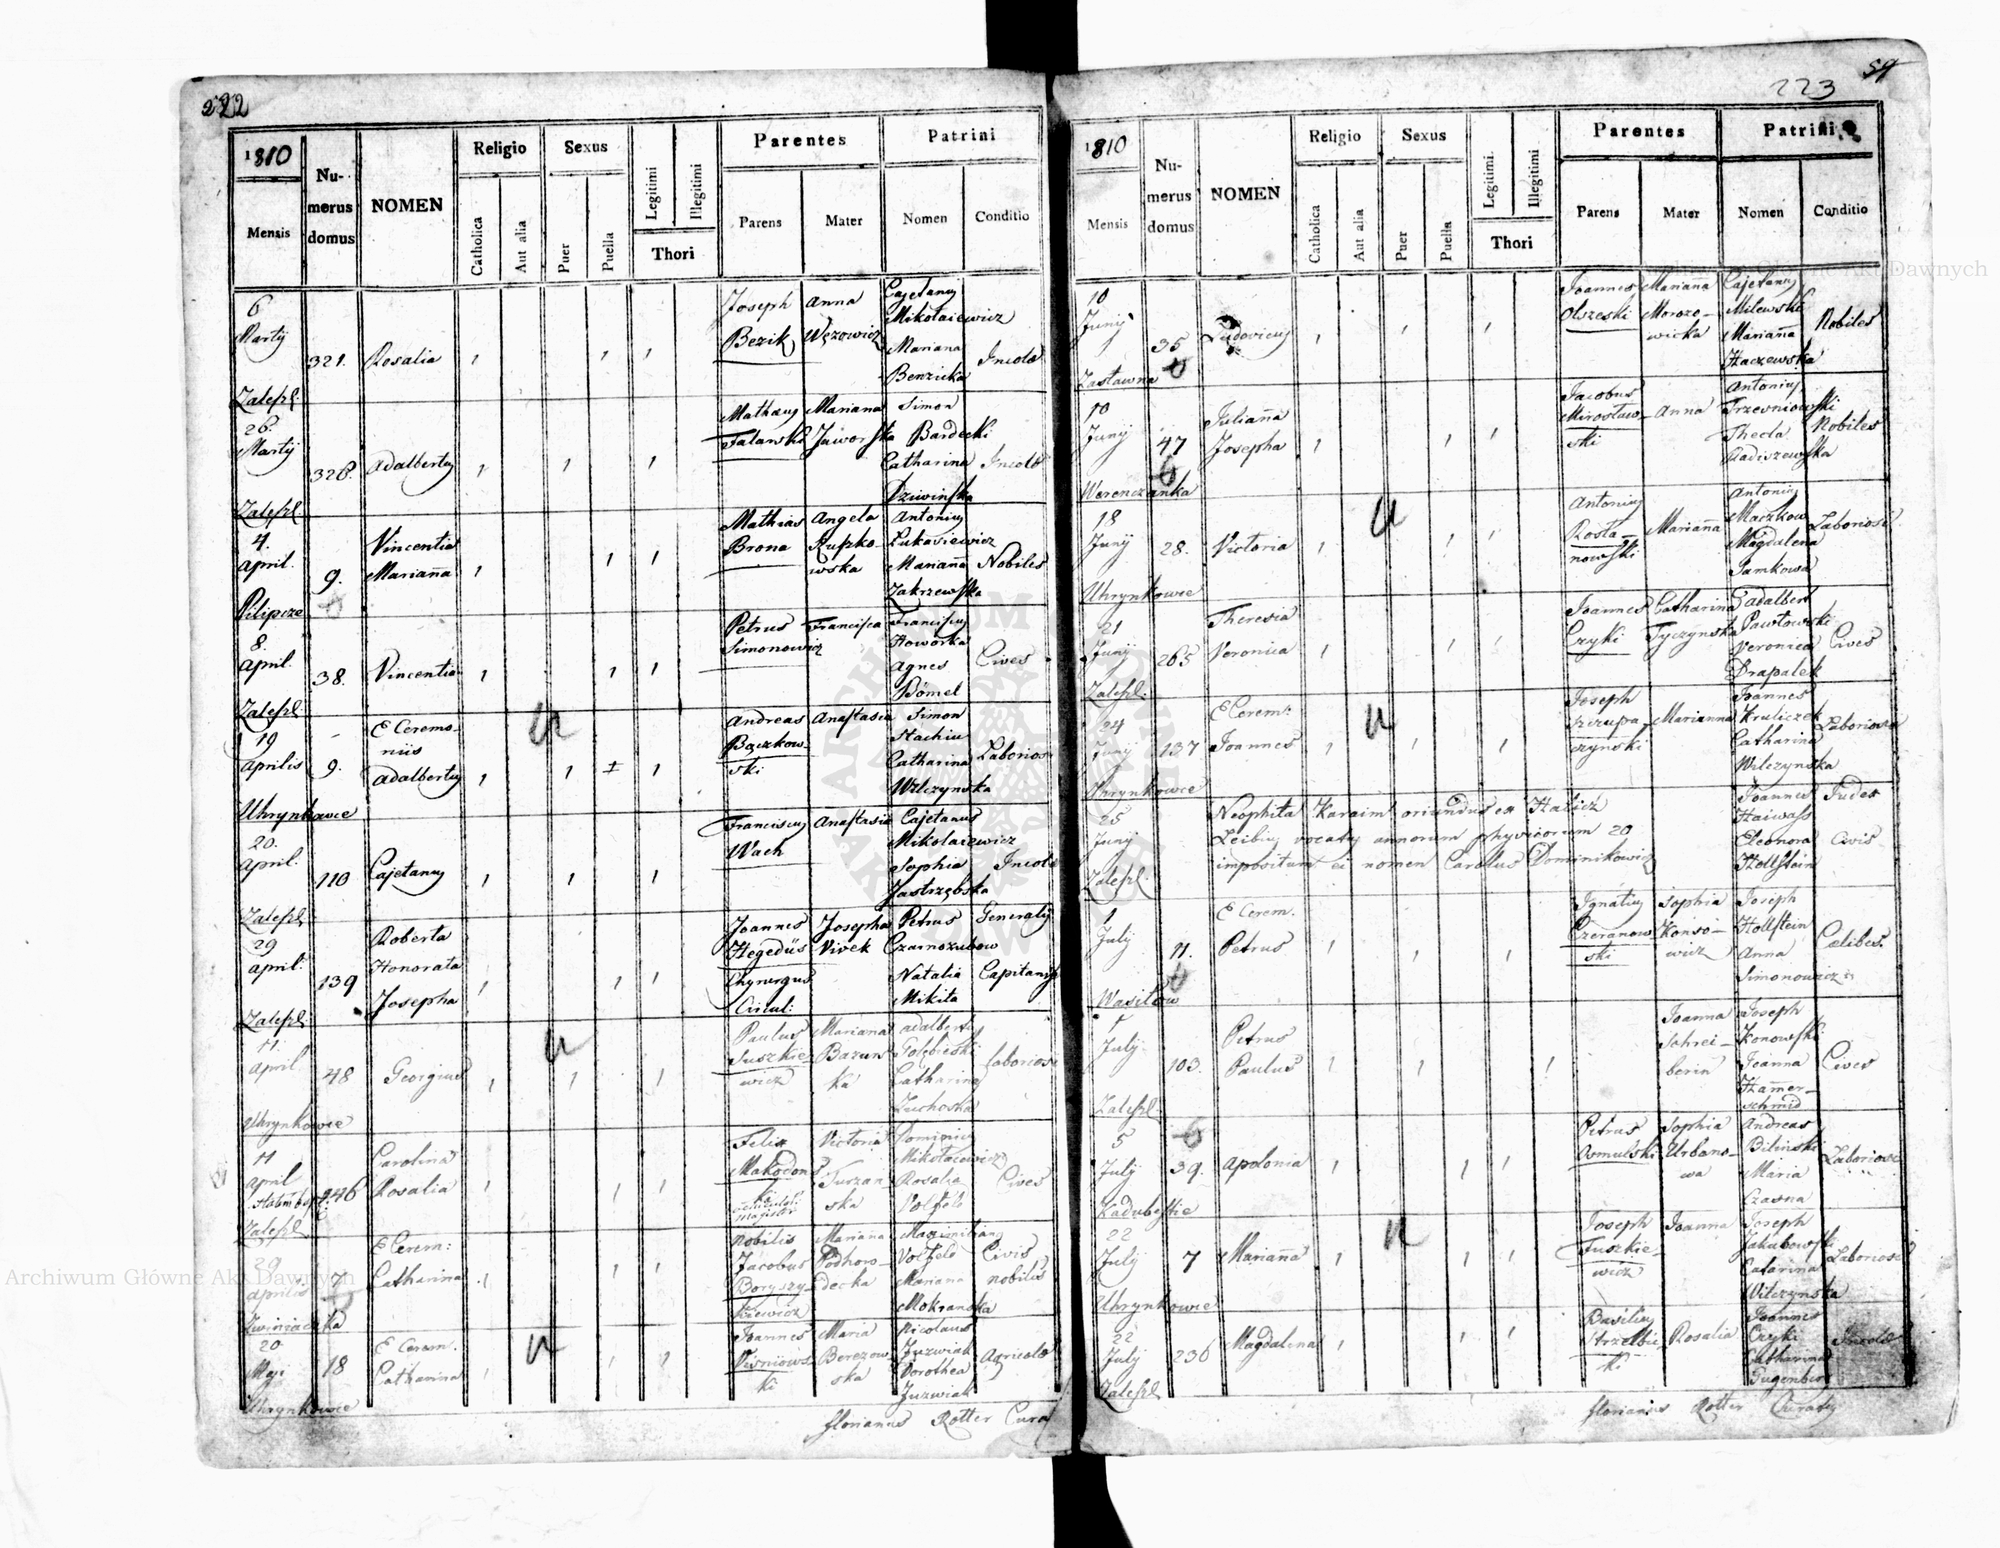 222
1810
Mensis
Nu-
merus
domus
NOMEN
Religio
Catholica
Aut alia
Sexus
Puer
Puella
Legitimi
Illegitimi
Thori
Parentes
Parens
Mater
Patrini
Nomen
Conditio
6
Martij
Zaleszl:
321.
Rosalia
Joseph
Bezik
Anna
Węzowicz
Cajetanus
Mikołaiewicz
Mariana
Benzicka
Incolae
26.
Martij
Zaleszl
328.
Adalbertus
Mathaeus
Falawski
Mariana
Jaworska
Simon
Bardecki
Catharina
Dziwinska
Incolae
4.
April.
Pilipcze
9.
Vincentia
Marianna
Mathias
Brona
Angela
Rupko-
wska
Antonius
Łukasiewicz
Marianna
Zakrzewska
Nobiles
8.
April.
Zaleszl
38.
Vincentia
Petrus
Simonowicz
Francisca
Franciscus
Howorka
Agnes
Bömel
Cives
19
Aprilis
Uhrynkowce
9.
E Ceremo-
niis
Adalbertus
Andreas
Bączkow-
ski
Anastasia
Simon
Stachiu
Catharina
Wilczynska
Laboriosi
20.
April.
Zaleszl
110
Cajetanus
Franciscus
Wach
Anastasia
Cajetanus
Mikolaiewicz
Sophia
Jastrzębska
Incolae
29
April.
Zaleszl:
139
Roberta
Honorata
Josepha
Joannes
Hegedüs
Chyrurgus
Circul:
Josepha
Vivek
Petrus
Czarnozubow
Natalia
Mikita
Generalis
Capitanissa
11.
April
Uhrynkowce
48
Georgius
Paulus
Juszkie-
wicz
Mariana
Bazun
ka
Adalbertus
Gołębieski
Catharina
Zuchoska
Laboriosi
11
April
Zaleszl
246
Carolina
Rosalia
Felix
Makodons
ki
Victoria
Turzan
ska
Dominicus
Mikołaiewicz
Rosalia
Volfeld
Cives
29
Aprilis
Zwiniaczka
7
E Cerem:
Catharina
Nobilis
Jacobus
Boryszy-
kiewicz
Mariana
Podhoro-
decka
Maximilian
Volfeld
Mariana
Mokranska
Civis
nobilis
20
Maji
Uhrynkowce
18
E Cerem.
Catharina
Joannes
Wisniows
ki
Maria
Berezow
ska
Nicolaus
Juzwiak
Dorothea
Juzwiak
Agricolae
Florianus Rotter Cura
59
223
1810
Mensis
Nu-
merus
domus
NOMEN
Religio
Catholica
Aut alia
Sexus
Puer
Puella
Legitimi
Illegitimi
Thori
Parentes
Parens
Mater
Patrini
Nomen
Conditio
10
Junij
Zastawna
35
Ludovicus
Joannes
Olszeski
Mariana
Morozo-
wicka
Cajetanus
Milewski
Marianna
Haczewska
Nobiles
10
Junij
Werenczanka
47
Julianna
Josepha
Jacobus
Mirosław-
ski
Anna
Antonius
Trzewniowski
Thecla
Radiszewska
Nobiles
18
Junij
Uhrynkowce
28.
Victoria
Antonius
Rosta-
nowski
Marianna
Antonius
Maczkow
Magdalena
Jamkowa
Laboriosi
21
Junij
Zaleszl:
265
Theresia
Veronica
Joannes
Czyki
Catharina
Tyczynska
Adalbert
Pawłowski
Veronica
Drapalek
Cives
24
Junij
Uhrynkowce
137
E Cerem:
Joannes
Joseph
Szczupa-
czynski
Marianna
Joannes
Kruliczek
Catharina
Wilczynska
Laboriosi
25
Junij
Zaleszl:
Neophita Karaim oriundus ex Halicz
Leibius vocatus annorum physicorum 20
impositum ei nomen Carolus Dominikowicz
Joannes
Haiwass
Eleonora
Hollstein
Judex
Civis
1
July
Wasilow
11.
E Cerem.
Petrus
Ignatius
Czeranow
ski
Sophia
Konso-
wicz
Joseph
Hollstein
Anna
Simonowicz
Caelibes.
1
July.
Zaleszl
103.
Petrus
Paulus
Joanna
Schrei-
berin
Joseph
Konowski
Joanna
Hamer-
schmid
Cives
5
July
Kadubestie
39.
Apolonia
Petrus
Osmulski
Sophia
Urbano-
wa
Andreas
Bilinski
Maria
Czasna
Laboriosi
22
July
Uhrynkowce
7
Marianna
Joseph
Juszkie-
wicz
Joanna
Joseph
Jakubowski
Catarina
Wilczynska
Laboriosi
22
July
Zaleszl
236
Magdalena
Basilius
Strzelbic
ki
Rosalia
Joannes
Czyki
Catharina
Gugenberg
Incolae
Florianus Rotter Curatus
Archiwum Główne Akt Dawnych